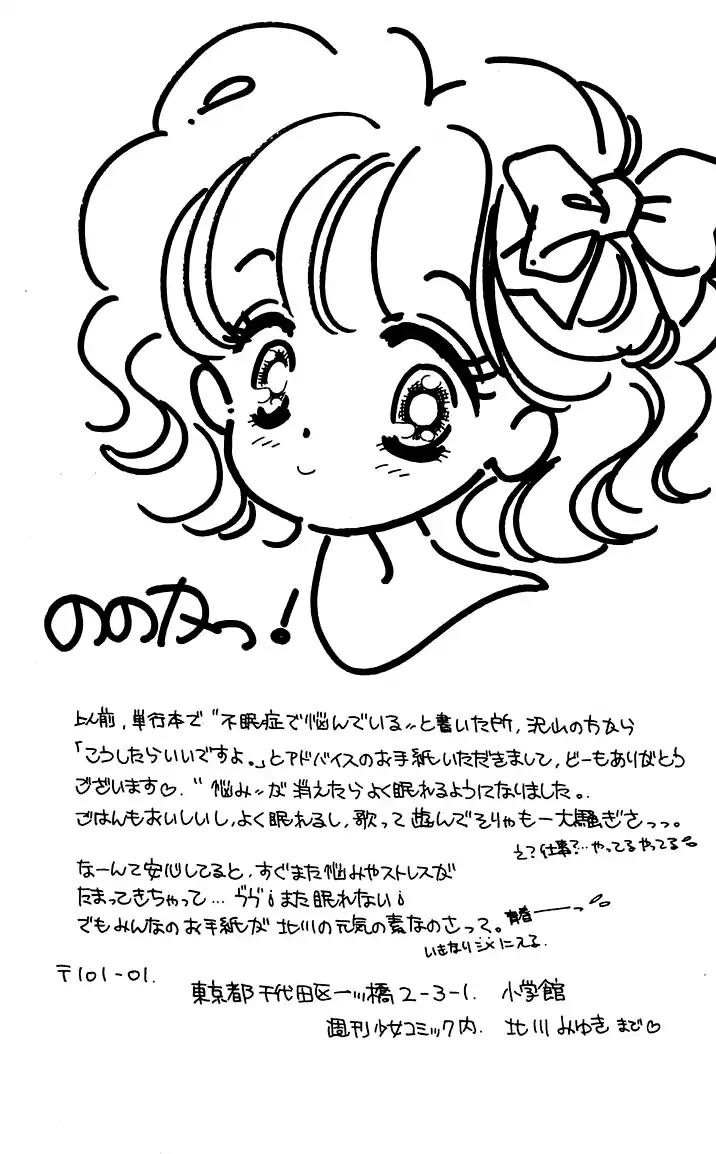 ののかっ!
以前、単行本で〝不眠症で悩んでいる〟と書いた所、沢山の方から
「こうしたらいいですよ。」とアドバイスのお手紙いただきまして、どーもありがとう
ございます♡. 〝悩み〟が消えたらよく眠れるようになりました。
ごはんもおいしいし、よく眠れるし、歌って遊んでそりゃもー大騒ぎさっっ。
え?仕事?…やってるやってる
なーんて安心してると、すぐまた悩みやストレスが
たまってきちゃって…ゔゔ¡また眠れない¡
でもみんなのお手紙が北川の元気の素なのさって。青春――っ
いきなりジメにえる.
〒101-01.
東京都千代田区一ツ橋2-3-1. 小学館
週刊少女コミック内. 北川みゆきまで♡